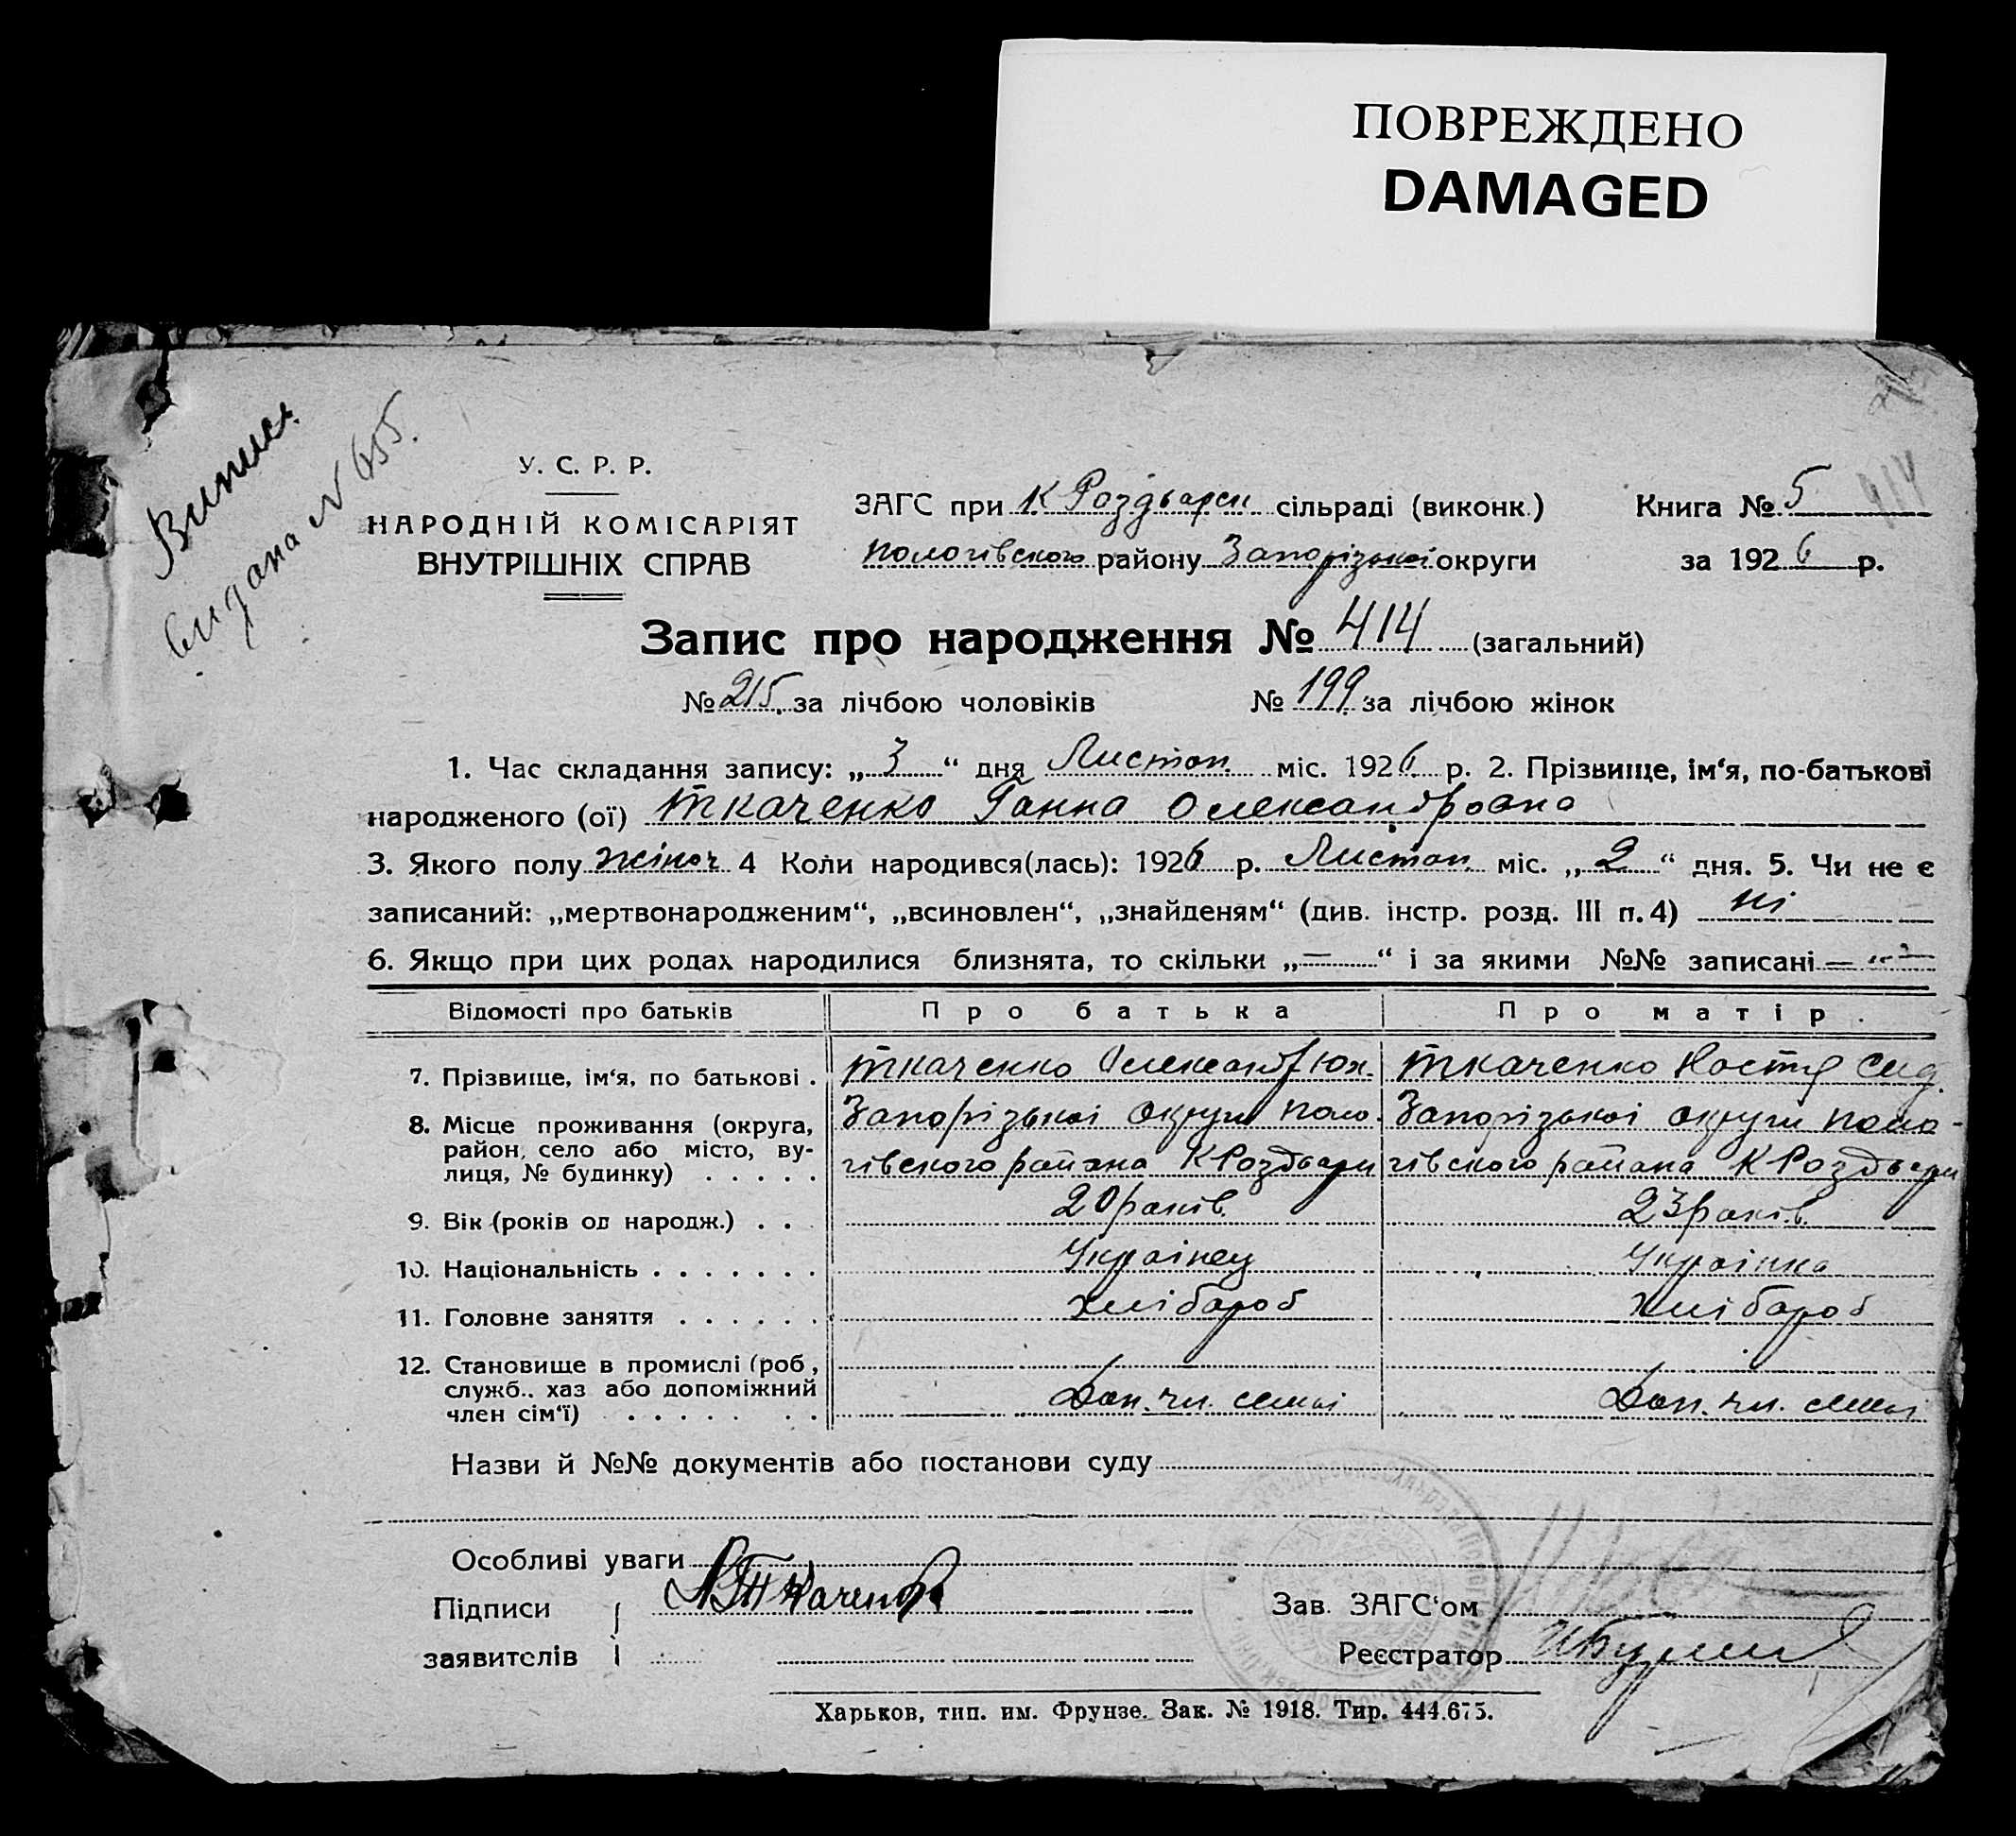 ПОВРЕЖДЕНО
DAMAGED
Випис.
видана № 655.
414
У. С. Р. Р.
НАРОДНІЙ КОМІСАРІЯТ
ВНУТРІШНІХ СПРАВ
ЗАГС при К Роздьари сільраді (виконк.) Книга № 5
Пологівского району Запорізької округи за 1926 р.
Запис про народження № 414 (загальний)
№ 215. за лічбою чоловіків № 199. за лічбою жінок
1. Час складання запису: „3“ дня Листоп. міс. 1926 р. 2. Прізвище, ім‘я, по-батькові
народженого (ої) Ткаченко Ганна Олександровна
3. Якого полу жіноч 4 Коли народився(лась): 1926 р. Листоп. міс. „2“ дня. 5. Чи не є
записаний: „мертвонародженим“, „всиновлен“, „знайденям“ (див. інстр. розд. III п. 4) ні
6. Якщо при цих родах народилися близнята, то скільки „—“ і за якими №№ записані — „ —
Відомості про батьків Про батька Про матір.
7. Прізвище, ім‘я, по батькові . Ткаченко Олександр Юх. Ткаченко Настя Сид.
8. Місце проживання (округа, Запорізької округи Поло- Запорізької округи Поло-
район, село або місто, ву- гівского района К Роздьари гівского района К Роздьари
лиця, № будинку) . . . . .
9. Вік (років од народж.) . . . 20 раків. 23 раків.
10. Національність . . . . . . . Українец Українка
11. Головне заняття . . . . . . хлібароб хлібароб
12. Становище в промислі (роб.,
служб.. хаз або допоміжний Доп. чл. семьі Доп. чл. семьі
член сім‘ї) . . . . . . .
Назви й №№ документів або постанови суду
Особливі уваги
Підписи А Ткаченко Зав. ЗАГС‘ом
заявителів Реєстратор
Харьков, тип. им. Фрунзе. Зак. № 1918. Тир. 444.675.